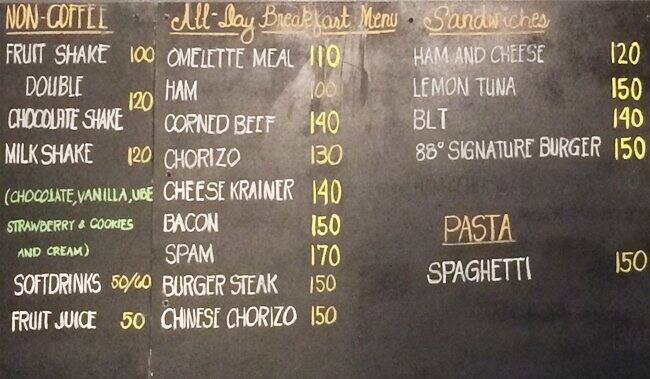 NON-COFFEE
FRUIT SHAKE 100
DOUBLE
CHOCOLATE SHAKE 120
MILK SHAKE 120
(CHOCOLATE, VANILLA, UBE
STRAWBERRY & COOKIES
AND CREAM)
SOFTDRINKS 50/60
FRUIT JUICE 50
All-Day Breakfast Menu
OMELETTE MEAL 110
HAM 100
CORNED BEEF 140
CHORIZO 130
CHEESE KRAINER 140
BACON 150
SPAM 170
BURGER STEAK 150
CHINESE CHORIZO 150
Sandwiches
HAM AND CHEESE 120
LEMON TUNA 150
BLT 140
88° SIGNATURE BURGER 150
PASTA
SPAGHETTI 150